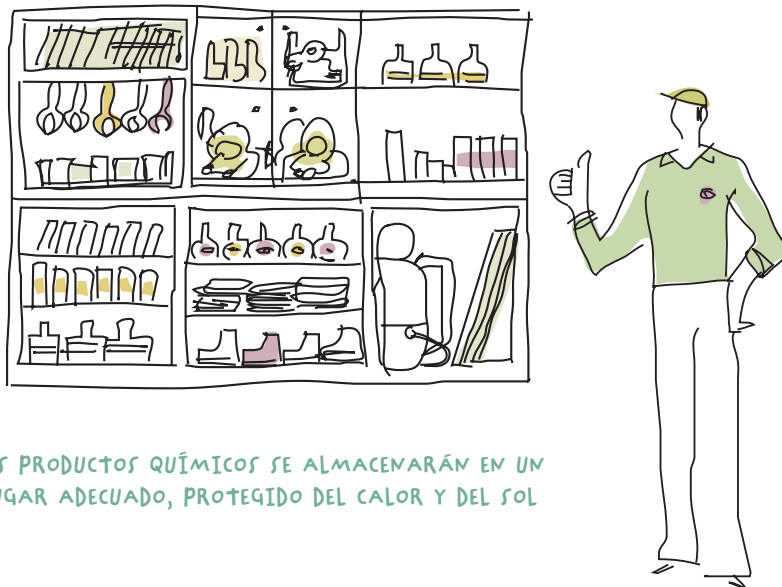 PRODUCTOS QUÍMICOS SE ALMACENARÁN EN UN
ADECUADO, PROTEGIDO DEL CALOR Y DEL SOL